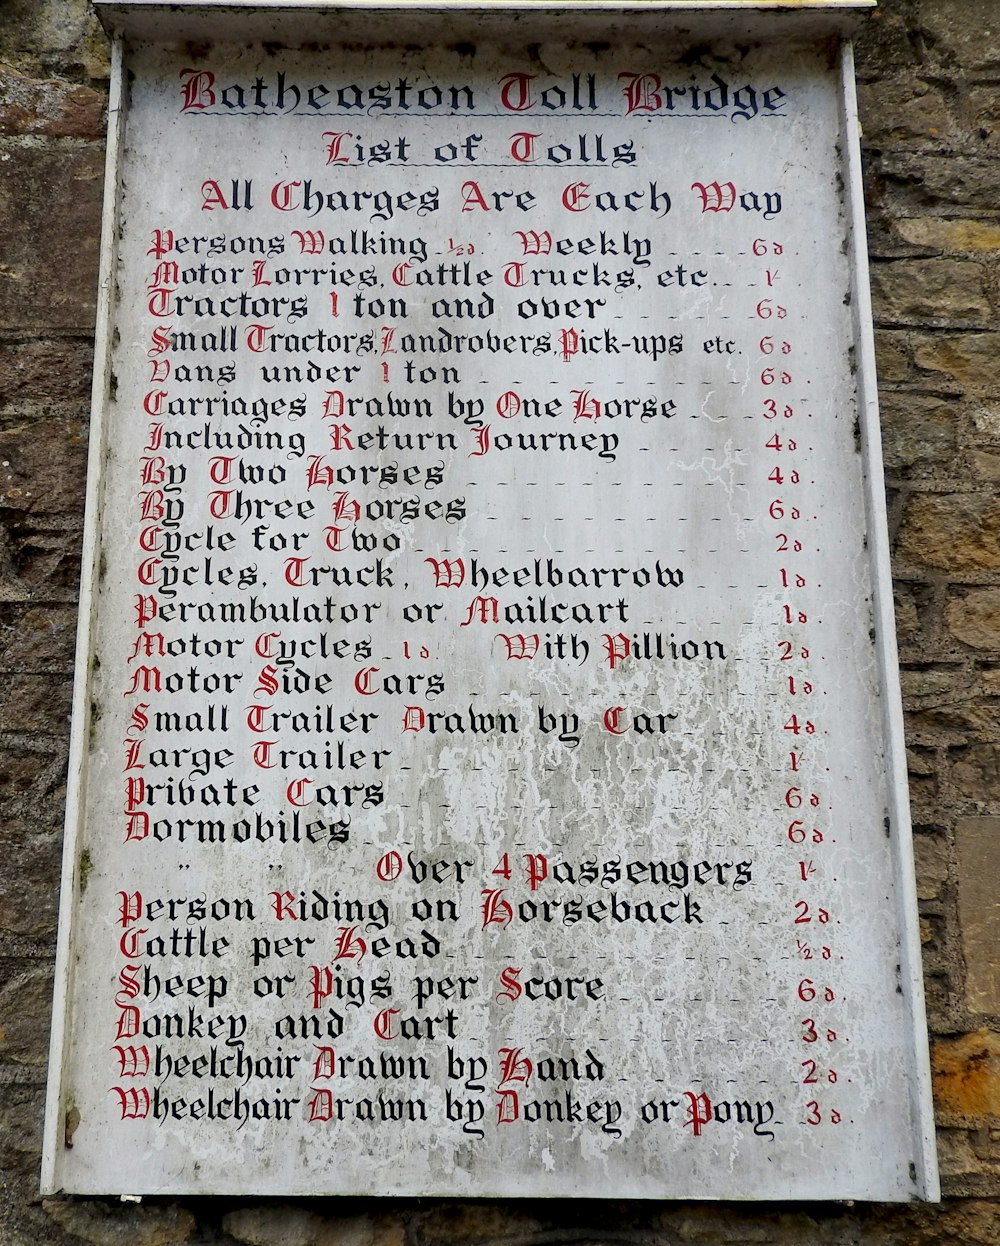 Batheaston Toll Bridge
List of Tolls
All Charges Are Each Way
Persons Walking ½d. Weekly 6d.
Motor Lorries, Cattle Trucks, etc. 1/-
Tractors 1 ton and over 6d.
Small Tractors, Landrovers, Pick-ups etc. 6d.
Vans under 1 ton 6d.
Carriages Drawn by One Horse 3d.
Including Return Journey 4d.
By Two Horses 4d.
By Three Horses 6d.
Cycle for Two 2d.
Cycles, Truck, Wheelbarrow 1d.
Perambulator or Mailcart 1d.
Motor Cycles 1d. With Pillion 2d.
Motor Side Cars 1d.
Small Trailer Drawn by Car 4d.
Large Trailer 1/-
Private Cars 6d.
Dormobiles 6d.
" " Over 4 Passengers 1/-
Person Riding on Horseback 2d.
Cattle per Head ½d.
Sheep or Pigs per Score 6d.
Donkey and Cart 3d.
Wheelchair Drawn by Hand 2d.
Wheelchair Drawn by Donkey or Pony 3d.